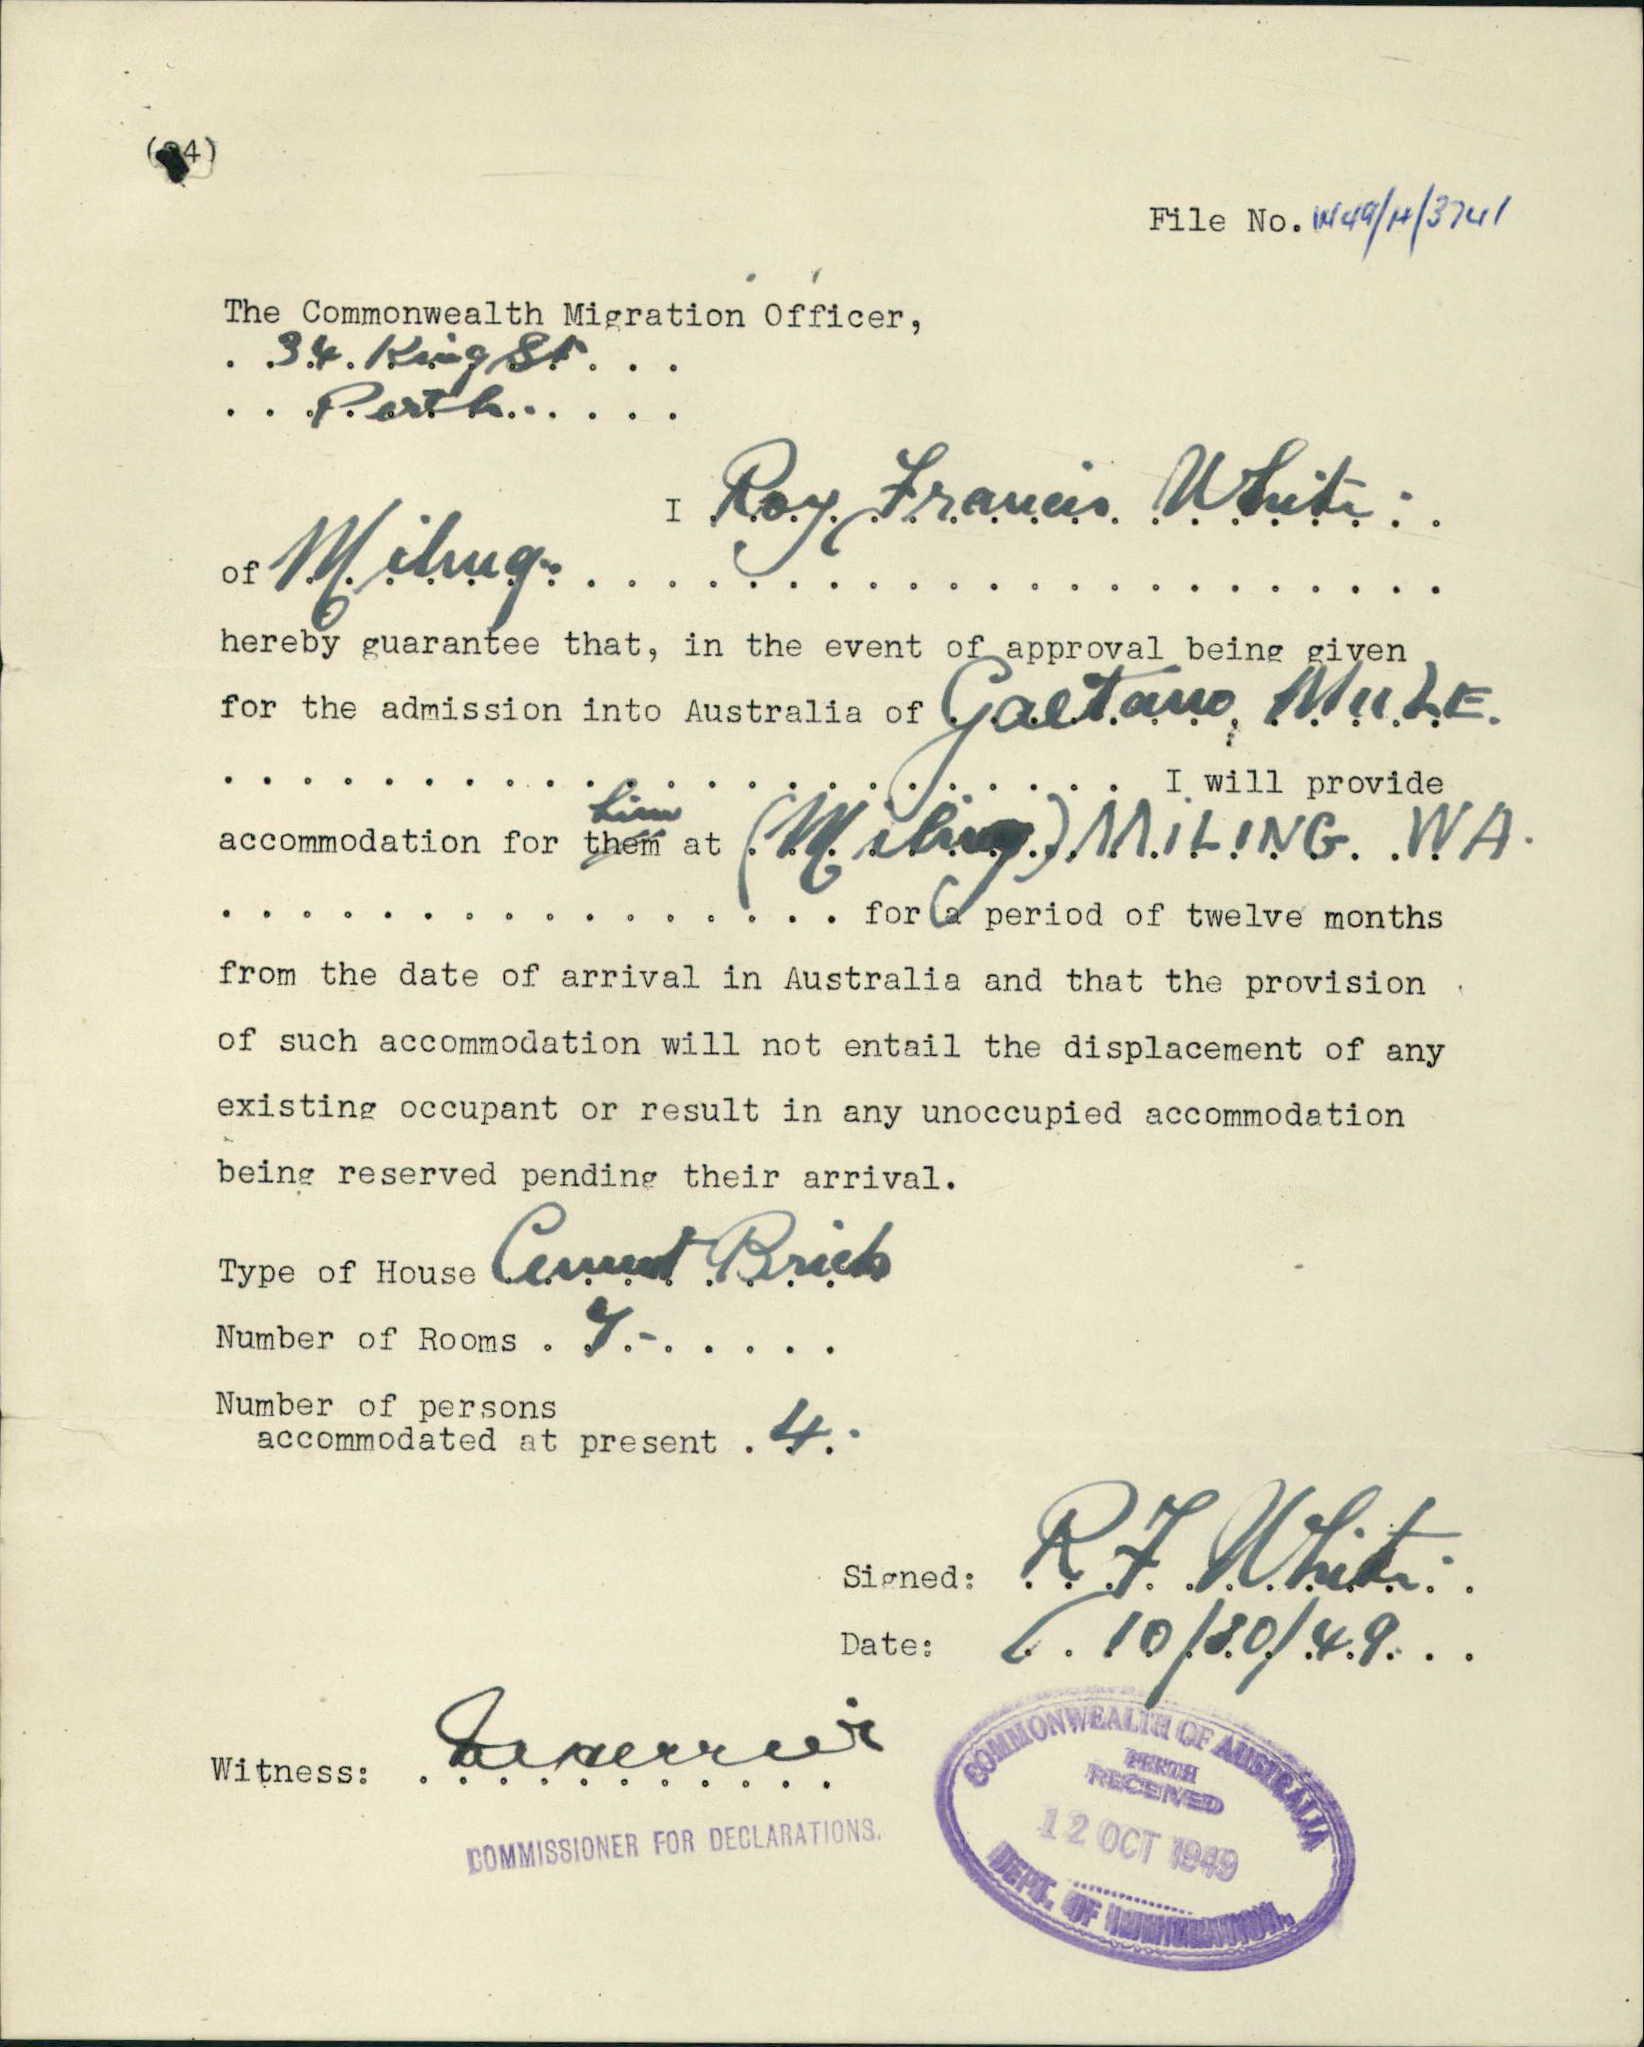 (4)
File No. W49/H/3741
The Commonwealth Migration Officer,
34 King St
Perth
I Roy Francis White
of Miling
hereby guarantee that, in the event of approval being given
for the admission into Australia of Gaetano MULE.
I will provide
him
accommodation for them at (Miling) MILING. WA.
for a period of twelve months
from the date of arrival in Australia and that the provision
of such accommodation will not entail the displacement of any
existing occupant or result in any unoccupied accommodation
being reserved pending their arrival.
Type of House Cement Brick
Number of Rooms 7
Number of persons
accommodated at present 4
Signed: R F White
Date: 10/49
Witness:
COMMISSIONER FOR DECLARATIONS.
COMMONWEALTH OF AUSTRALIA
PERTH
RECEIVED
12 OCT 1949
DEPT. OF IMMIGRATION.